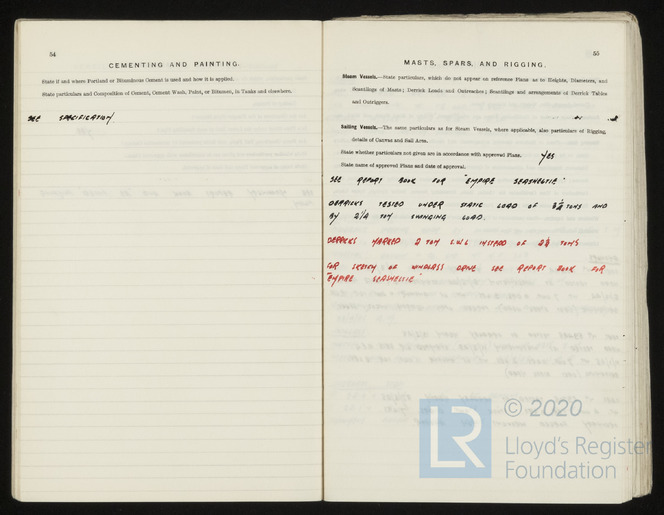 54
CEMENTING AND PAINTING.
State if and where Portland or Bituminous Cement is used and how it is applied.
State particulars and Composition of Cement, Cement Wash, Paint, or Bitumen, in Tanks and elsewhere.
SEE SPECIFICATION
55
MASTS, SPARS, AND RIGGING.
Steam Vessels.—State particulars, which do not appear on reference Plans as to Heights, Diameters, and
Scantlings of Masts; Derrick Loads and Outreaches; Scantlings and arrangements of Derrick Tables
and Outriggers.
Sailing Vessels.—The same particulars as for Steam Vessels, where applicable, also particulars of Rigging,
details of Canvas and Sail Area.
State whether particulars not given are in accordance with approved Plans. YES
State name of approved Plans and date of approval.
SEE REPORT BOOK FOR "EMPIRE SEASHELTIE"
DERRICKS TESTED UNDER STATIC LOAD OF TONS AND
BY 2 1/2 TON SWINGING LOAD.
DERRICKS MARKED 2 TON S.W.L INSTEAD OF 2½ TONS
FOR SKETCH OF WINDLASS DRIVE SEE REPORT BOOK FOR
"EMPIRE SEASHELTIE"
LR
© 2020
Lloyd's Register
Foundation